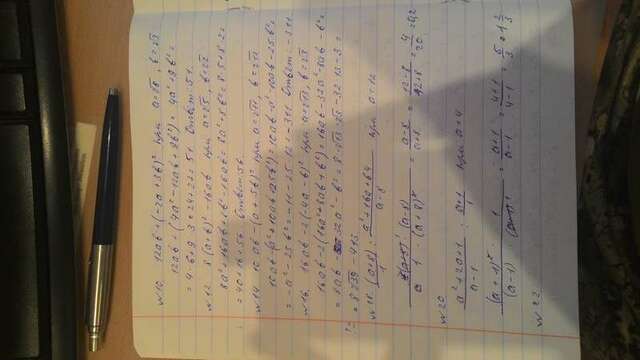 №10. 12ab+(-2a+3b)² при a=√6, b=√3
12ab+(4a²-12ab+9b²)= 4a²+9b²=
=4·6+9·3=24+27=51. Ответ: 51.
№12. 8(a+b)²-16ab при a=√5, b=√2
8a²+16ab+8b²-16ab=8a²+8b²=8·5+8·2=
=40+16=56 Ответ: 56.
№14. 10ab-(a+5b)² при a=√11, b=√12
10ab-(a²+10ab+25b²)=10ab-a²-10ab-25b²=
=-a²-25b²=-11-25·12=-311 Ответ: -311
№16. 16ab-2(-4a-b)² при a=√13, b=√3
16ab-2(16a²+8ab+b²)=16ab-32a²-8ab-b²=
=8ab-32a²-b²=8·√13·√3-32·13-3=
=8√39-413
№18. (a+8)/1 : (a²+16a+64)/(a-8) при a=12
(a+8)¹(a-8)/1·(a+8)² = (a-8)/(a+8) = (12-8)/(12+8) = 4/20 = 0,2
№20
(a²+2a+1)/(a-1) : (a+1)/1 при a=4
(a+1)²/(a-1) · 1/(a+1)¹ = (a+1)/(a-1) = (4+1)/(4-1) = 5/3 = 1 2/3
№22